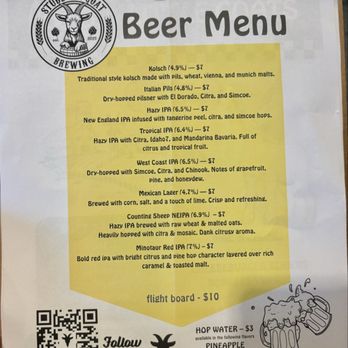 Beer Menu
BREWING
Kolsch (4.9%) — $7
Traditional style kolsch made with pils, wheat, vienna, and munich malts.
Italian Pils (4.8%) — $7
Dry-hopped pilsner with El Dorado, Citra, and Simcoe.
Hazy IPA (6.5%) — $7
New England IPA infused with tangerine peel, citra, and simcoe hops.
Tropical IPA (6.4%) — $7
Hazy IPA with Citra, Idaho7, and Mandarina Bavaria. Full of
citrus and tropical fruit.
West Coast IPA (6.5%) — $7
Dry-hopped with Simcoe, Citra, and Chinook. Notes of grapefruit,
pine, and honeydew.
Mexican Lager (4.7%) — $7
Brewed with corn, salt, and a touch of lime. Crisp and refreshing.
Counting Sheep NEIPA (6.9%) – $7
Hazy IPA brewed with raw wheat & malted oats.
Heavily hopped with citra & mosaic. Dank citrusy aroma.
Minotaur Red IPA (7%) – $7
Bold red ipa with bright citrus and pine hop character layered over rich
caramel & toasted malt.
flight board - $10
Follow
HOP WATER – $3
available in the following flavors
PINEAPPLE